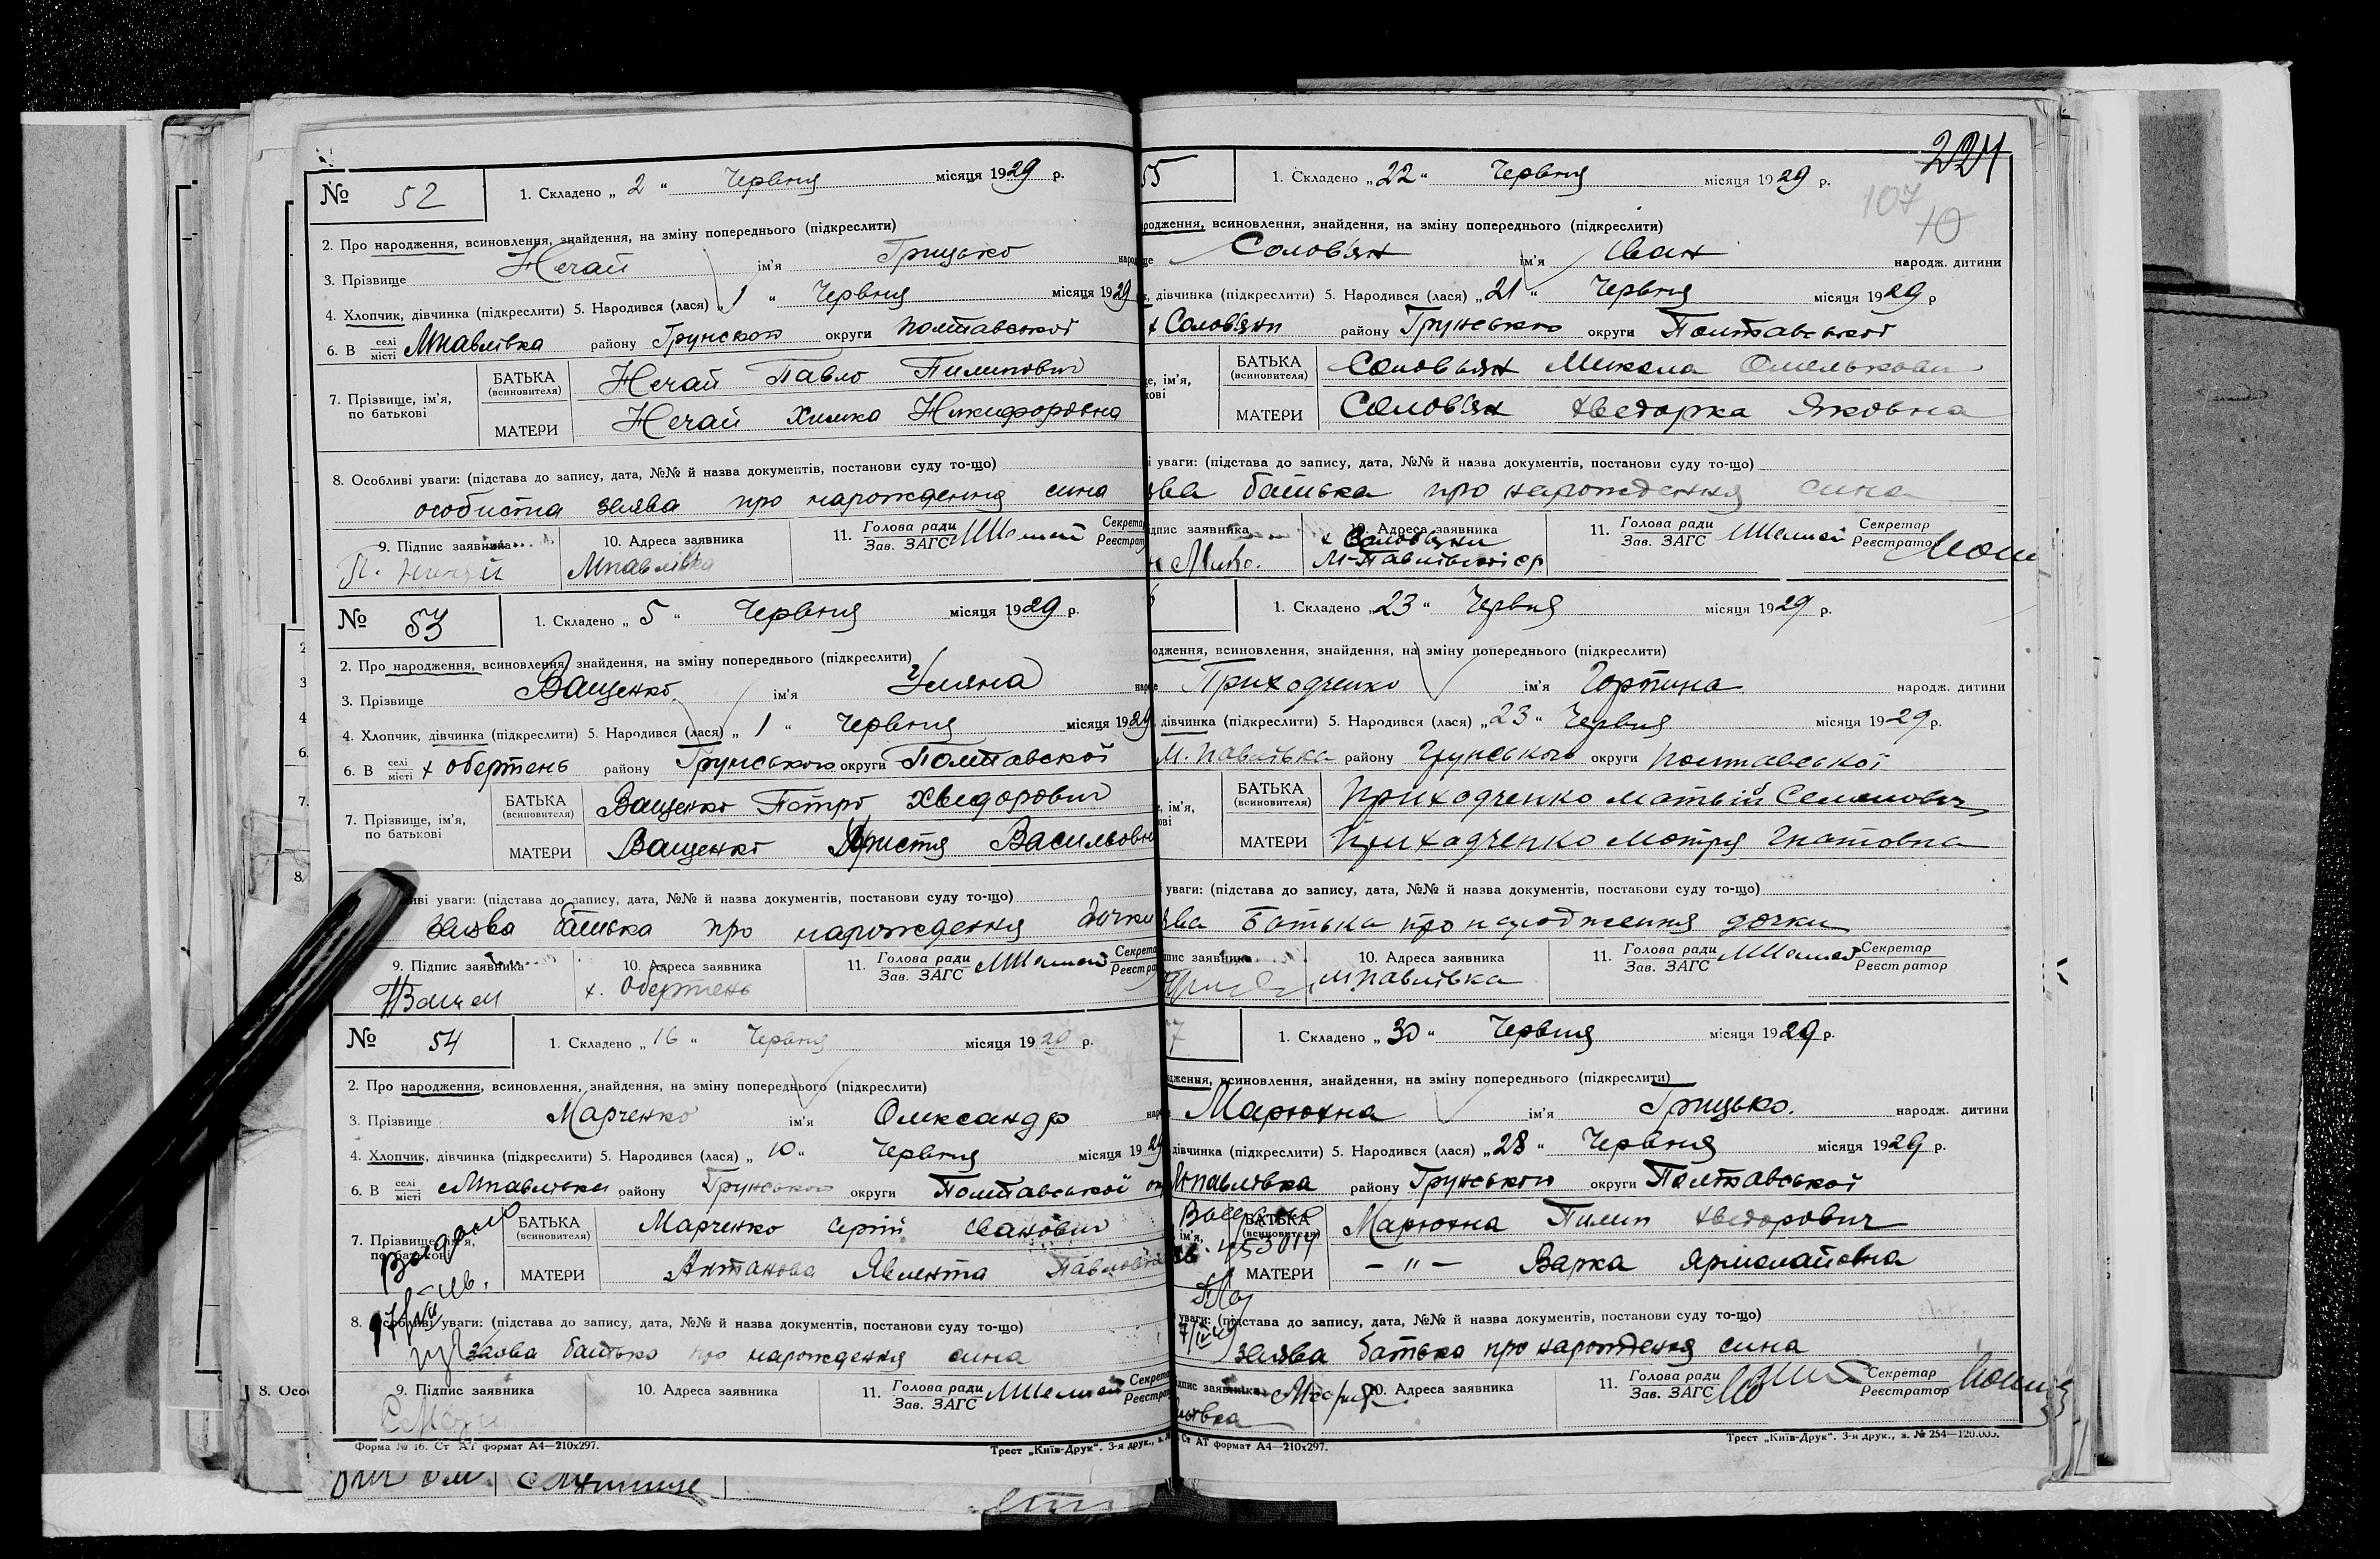 № 52 1. Складено „ 2 “ Червня місяця 1929 р.
2. Про народження, всиновлення, знайдення, на зміну попереднього (підкреслити)
3. Прізвище Нечай ім'я Грицько
4. Хлопчик, дівчинка (підкреслити) 5. Народився (лася) „ 1 “ Червня місяця 1929
6. В селі місті Мпавлівка району Грунского округи Полтавської
7. Прізвище, ім'я, по батькові
БАТЬКА (всиновителя) Нечай Павло Пилипович
МАТЕРИ Нечай Химка Никифоровна
8. Особливі уваги: (підстава до запису, дата, №№ й назва документів, постанови суду то-що)
особиста заява про нарождення сина
9. Підпис заявника 10. Адреса заявника 11. Голова ради Зав. ЗАГС
Мпавлівка
№ 53 1. Складено „ 5 “ Червня місяця 1929 р.
2. Про народження, всиновлення, знайдення, на зміну попереднього (підкреслити)
3. Прізвище Ващенко ім'я Уляна
4. Хлопчик, дівчинка (підкреслити) 5. Народився (лася) „ 1 “ Червня місяця 1929
6. В селі місті х Обертень району Грунського округи Полтавської
7. Прізвище, ім'я, по батькові
БАТЬКА (всиновителя) Ващенко Петро Хведорович
МАТЕРИ Ващенко Христя Васильовн
уваги: (підстава до запису, дата, №№ й назва документів, постанови суду то-що)
заява батька про нарождення дочки
9. Підпис заявника 10. Адреса заявника 11. Голова ради Зав. ЗАГС
х. Обертень
№ 54 1. Складено „ 16 “ Червня місяця 1929 р.
2. Про народження, всиновлення, знайдення, на зміну попереднього (підкреслити)
3. Прізвище Марченко ім'я Олександр
4. Хлопчик, дівчинка (підкреслити) 5. Народився (лася) „ 10 “ Червня місяця 1929
6. В селі місті Мпавлівка району Грунського округи Полтавської
7. Прізвище, ім'я, по батькові
БАТЬКА (всиновителя) Марченко Сергій Іванович
МАТЕРИ Антанова Явлента Павловна
8. Особливі уваги: (підстава до запису, дата, №№ й назва документів, постанови суду то-що)
заява батька про нарождення сина
9. Підпис заявника 10. Адреса заявника 11. Голова ради Зав. ЗАГС
Форма № 16. Ст АТ формат А4—210х297. Трест „Київ-Друк“. 3-я друк.,
224
107
10
55 1. Складено „ 22 “ Червня місяця 1929 р.
родження, всиновлення, знайдення, на зміну попереднього (підкреслити)
Солов'ян ім'я Іван народж. дитини
дівчинка (підкреслити) 5. Народився (лася) „ 21 “ Червня місяця 1929 р
х Солов'яни району Грунського округи Полтавської
БАТЬКА (всиновителя) Солов'ян Микола Омелькович
МАТЕРИ Солов'ян Хведорка Яковна
уваги: (підстава до запису, дата, №№ й назва документів, постанови суду то-що)
ява батька про нарождення сина
підпис заявника 10. Адреса заявника 11. Голова ради Зав. ЗАГС Секретар Реєстратор
х Солов'яни
1. Складено „ 23 “ Червня місяця 1929 р.
одження, всиновлення, знайдення, на зміну попереднього (підкреслити)
Приходченко ім'я Горпина народж. дитини
дівчинка (підкреслити) 5. Народився (лася) „ 23 “ Червня місяця 1929 р.
М. Павлівка району Грунського округи Полтавської
БАТЬКА (всиновителя) Приходченко Матвій Семенович
МАТЕРИ Приходченко Мотря Гнатовна
уваги: (підстава до запису, дата, №№ й назва документів, постанови суду то-що)
ява батька про народження дочки
підпис заявника 10. Адреса заявника 11. Голова ради Зав. ЗАГС Секретар Реєстратор
мпавлівка
7 1. Складено „ 30 “ Червня місяця 1929 р.
дження, всиновлення, знайдення, на зміну попереднього (підкреслити)
Марюхна ім'я Грицько. народж. дитини
дівчинка (підкреслити) 5. Народився (лася) „ 28 “ Червня місяця 1929 р.
Мпавлівка району Грунського округи Полтавської
БАТЬКА (всиновителя) Марюхна Пилип Хведорович
МАТЕРИ — " — Варка Ярмолаївна
уваги: (підстава до запису, дата, №№ й назва документів, постанови суду то-що)
заява батька про нарождення сина
підпис заявника 10. Адреса заявника 11. Голова ради Зав. ЗАГС Секретар Реєстратор
Ст АТ формат А4—210х297. Трест „Київ-Друк“. 3-я друк., з. № 254—120.000.